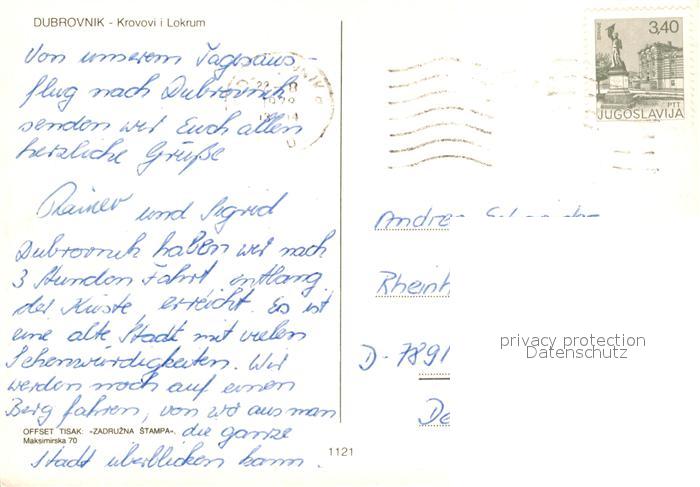 DUBROVNIK - Krovovi i Lokrum
Von unserem Tagesaus-
flug nach Dubrovnik
senden wir Euch allen
herzliche Grüße
Rainer und Sigrid
Dubrovnik haben wir nach
3 Stunden Fahrt entlang
der Küste, erreicht. Es ist
eine alte Stadt mit vielen
Sehenwürdigkeiten. Wir
werden noch auf einen
Berg fahren, von wo aus man
die ganze
Stadt überblicken kann.
OFFSET TISAK: »ZADRUŽNA ŠTAMPA«,
Maksimirska 70
1121
3,40
PTT
JUGOSLAVIJA
Andre
Rheinh
D-7891
De
privacy protection
Datenschutz